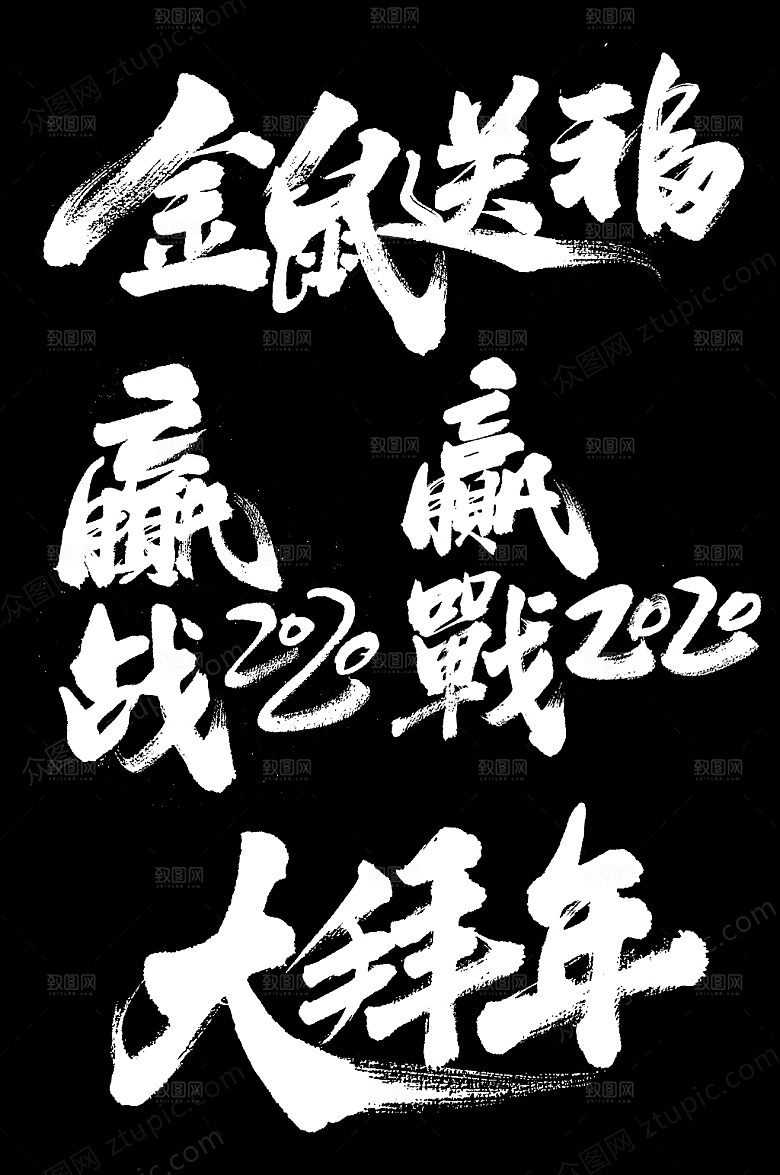 金鼠送福
赢
战2020
赢
戰2020
大拜年
致图网
zhitu88.com
众图网 ztupic.com